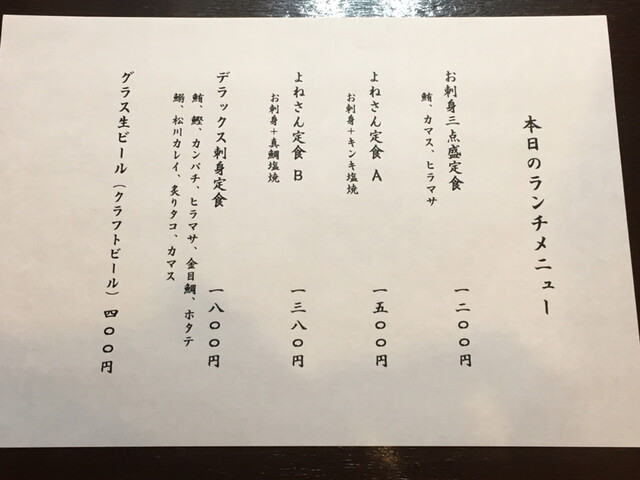 本日のランチメニュー
お刺身三点盛定食 一二〇〇円
鮪、カマス、ヒラマサ
よねさん定食A 一五〇〇円
お刺身+キンキ塩焼
よねさん定食B 一三八〇円
お刺身+真鯛塩焼
デラックス刺身定食 一八〇〇円
鮪、鰹、カンパチ、ヒラマサ、金目鯛、ホタテ
鰯、松川カレイ、炙りタコ、カマス
グラス生ビール(クラフトビール)四〇〇円